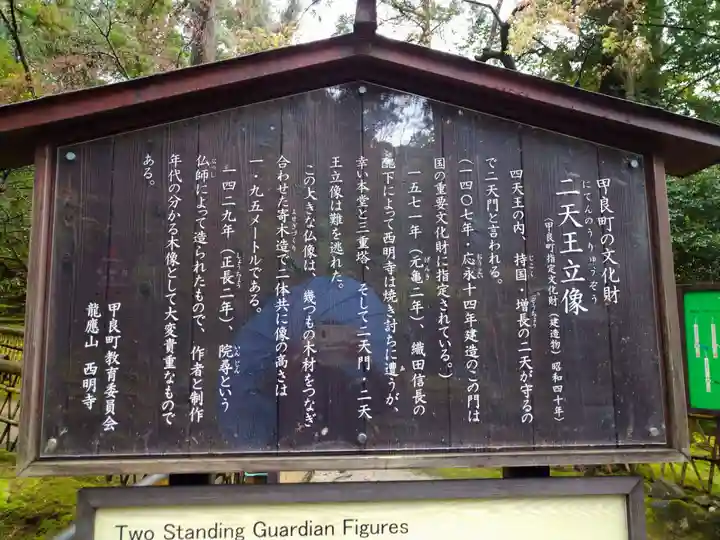 甲良町の文化財
にてんのうりゅうぞう
二天王立像
(甲良町指定文化財(建造物)昭和四十年)
四天王の内、持国・増長の二天が守るの
で二天門と言われる。
(一四〇七年・応永十四年建造のこの門は
国の重要文化財に指定されている。)
一五七一年(元亀二年)、織田信長の
麾下によって西明寺は焼き討ちに遭うが、
幸い本堂と三重塔、そして二天門・二天
王立像は難を逃れた。
この大きな仏像は、幾つもの木材をつなぎ
合わせた寄木造で二体共に像の高さは
一・九五メートルである。
一四二九年(正長二年)、院尋という
仏師によって造られたもので、作者と制作
年代の分かる木像として大変貴重なもので
ある。
甲良町教育委員会
龍應山 西明寺
Two Standing Guardian Figures